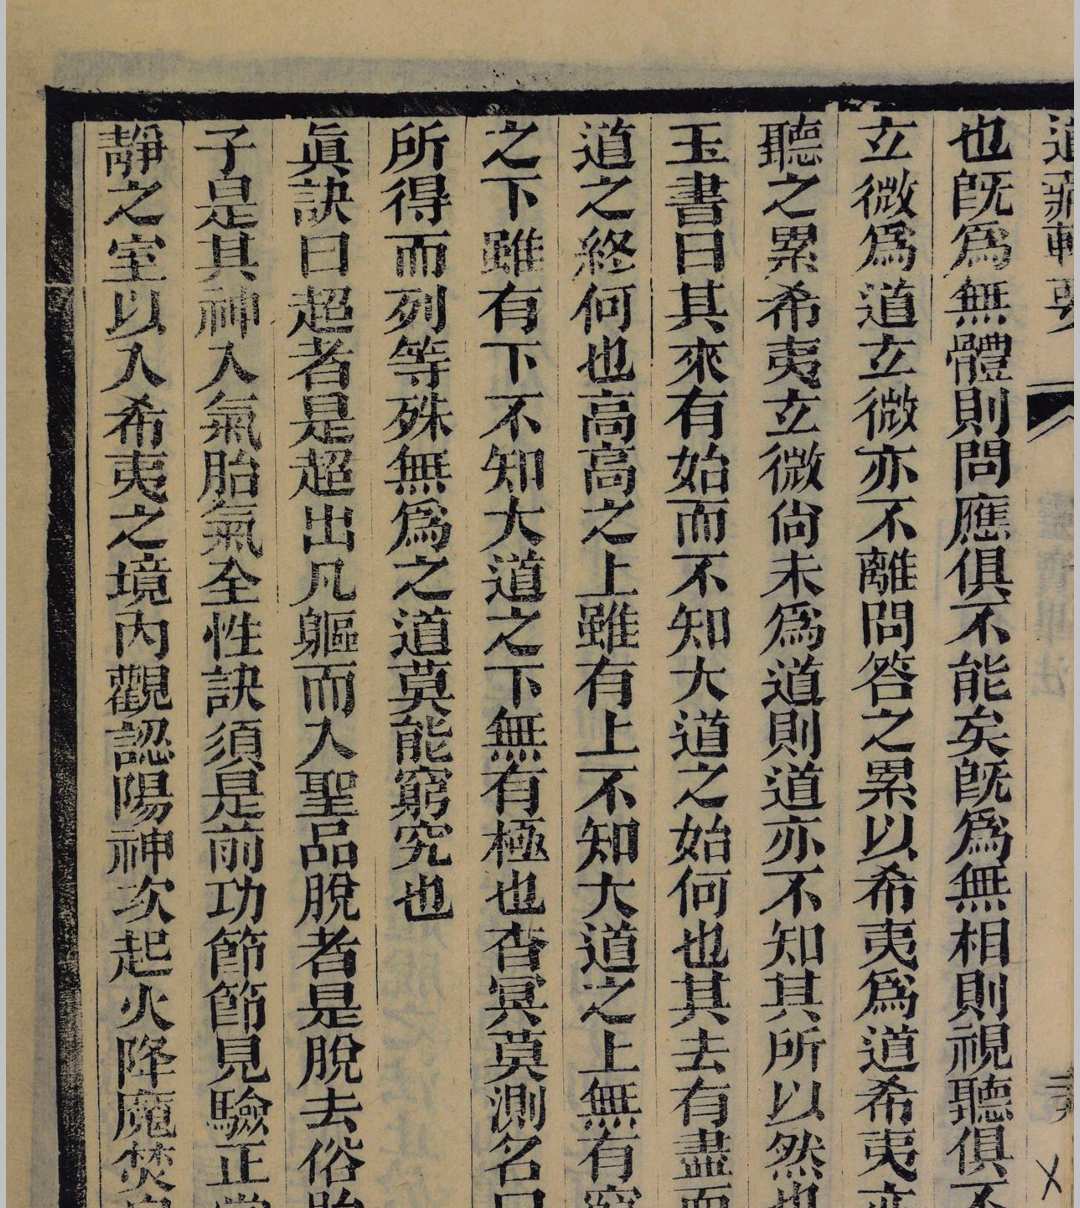 道藏輯要
也旣爲無體則問應俱不能矣旣爲無相則視聽俱不
立微爲道立微亦不離問答之累以希夷爲道希夷亦
聽之累希夷立微尙未爲道則道亦不知其所以然也
玉書曰其來有始而不知大道之始何也其去有盡而
道之終何也高高之上雖有上不知大道之上無有窮
之下雖有下不知大道之下無有極也杳冥莫測名曰
所得而列等殊無爲之道莫能窮究也
眞訣曰超者是超出凡軀而入聖品脫者是脫去俗胎
子是其神入氣胎氣全性訣須是前功節節見驗正當
靜之室以入希夷之境內觀認陽神次起火降魔焚身